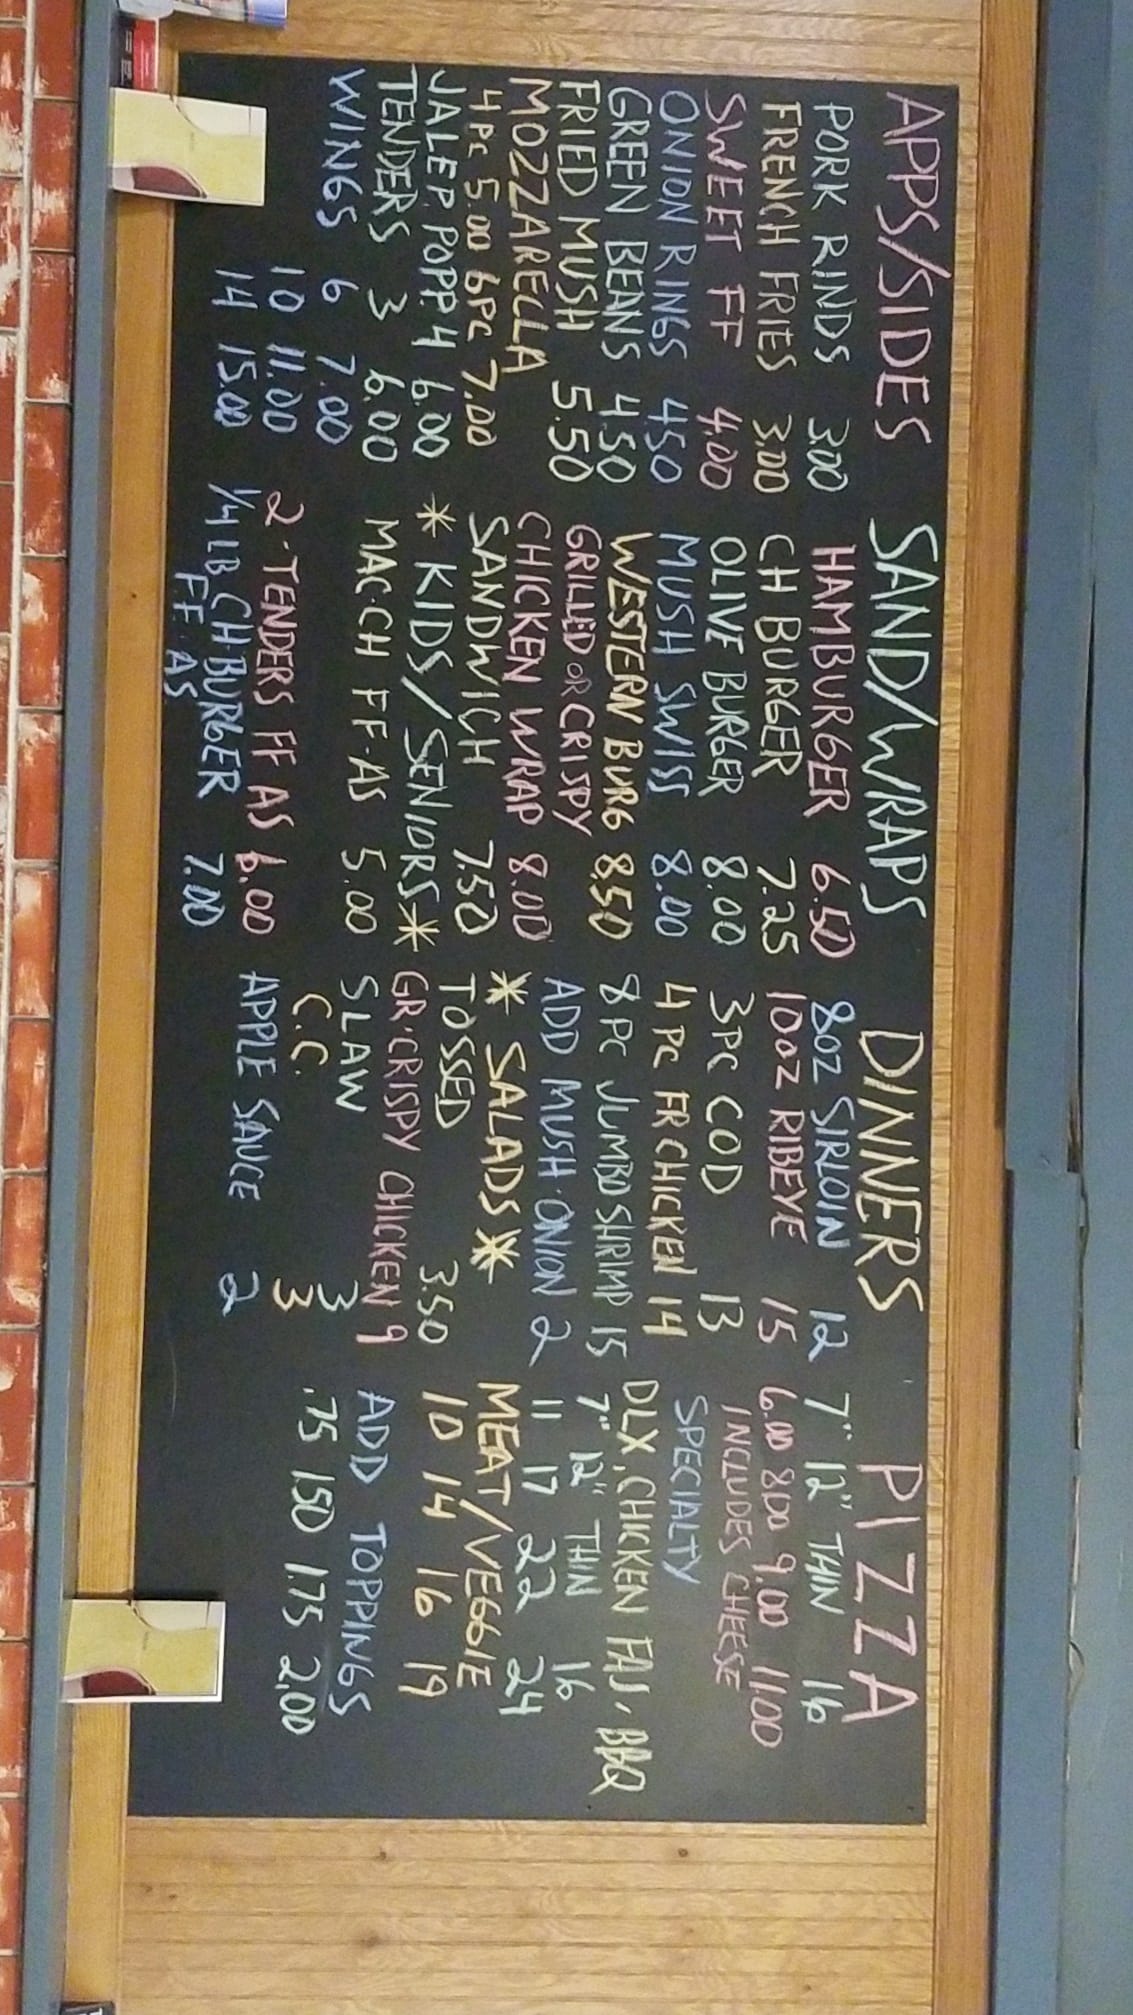 APPS/SIDES
PORK RINDS 3.00
FRENCH FRIES 3.00
SWEET FF 4.00
ONION RINGS 4.50
GREEN BEANS 4.50
FRIED MUSH 5.50
MOZZARELLA
4 PC 5.00 6 PC 7.00
JALEP POPP 4 6.00
TENDERS 3 6.00
WINGS 6 7.00
10 11.00
14 15.00
SAND/WRAPS
HAMBURGER 6.50
CH BURGER 7.25
OLIVE BURGER 8.00
MUSH SWISS 8.00
WESTERN BURG 8.50
GRILLED OR CRISPY
CHICKEN WRAP 8.00
SANDWICH 7.50
* KIDS/SENIORS *
MAC·CH FF·AS 5.00
2-TENDERS FF AS 6.00
1/4 LB CH BURGER 7.00
FF·AS
DINNERS
8OZ SIRLOIN 12
10OZ RIBEYE 15
3PC COD 13
4 PC FR CHICKEN 14
8 PC JUMBO SHRIMP 15
ADD MUSH·ONION 2
* SALADS *
TOSSED 3.50
GR·CRISPY CHICKEN 9
SLAW 3
C.C. 3
APPLE SAUCE 2
PIZZA
7" 12" THIN 16
6.00 8.00 9.00 11.00
INCLUDES CHEESE
SPECIALTY
DLX, CHICKEN FAJ, BBQ
7" 12" THIN 16
11 17 22 24
MEAT/VEGGIE
10 14 16 19
ADD TOPPINGS
.75 1.50 1.75 2.00